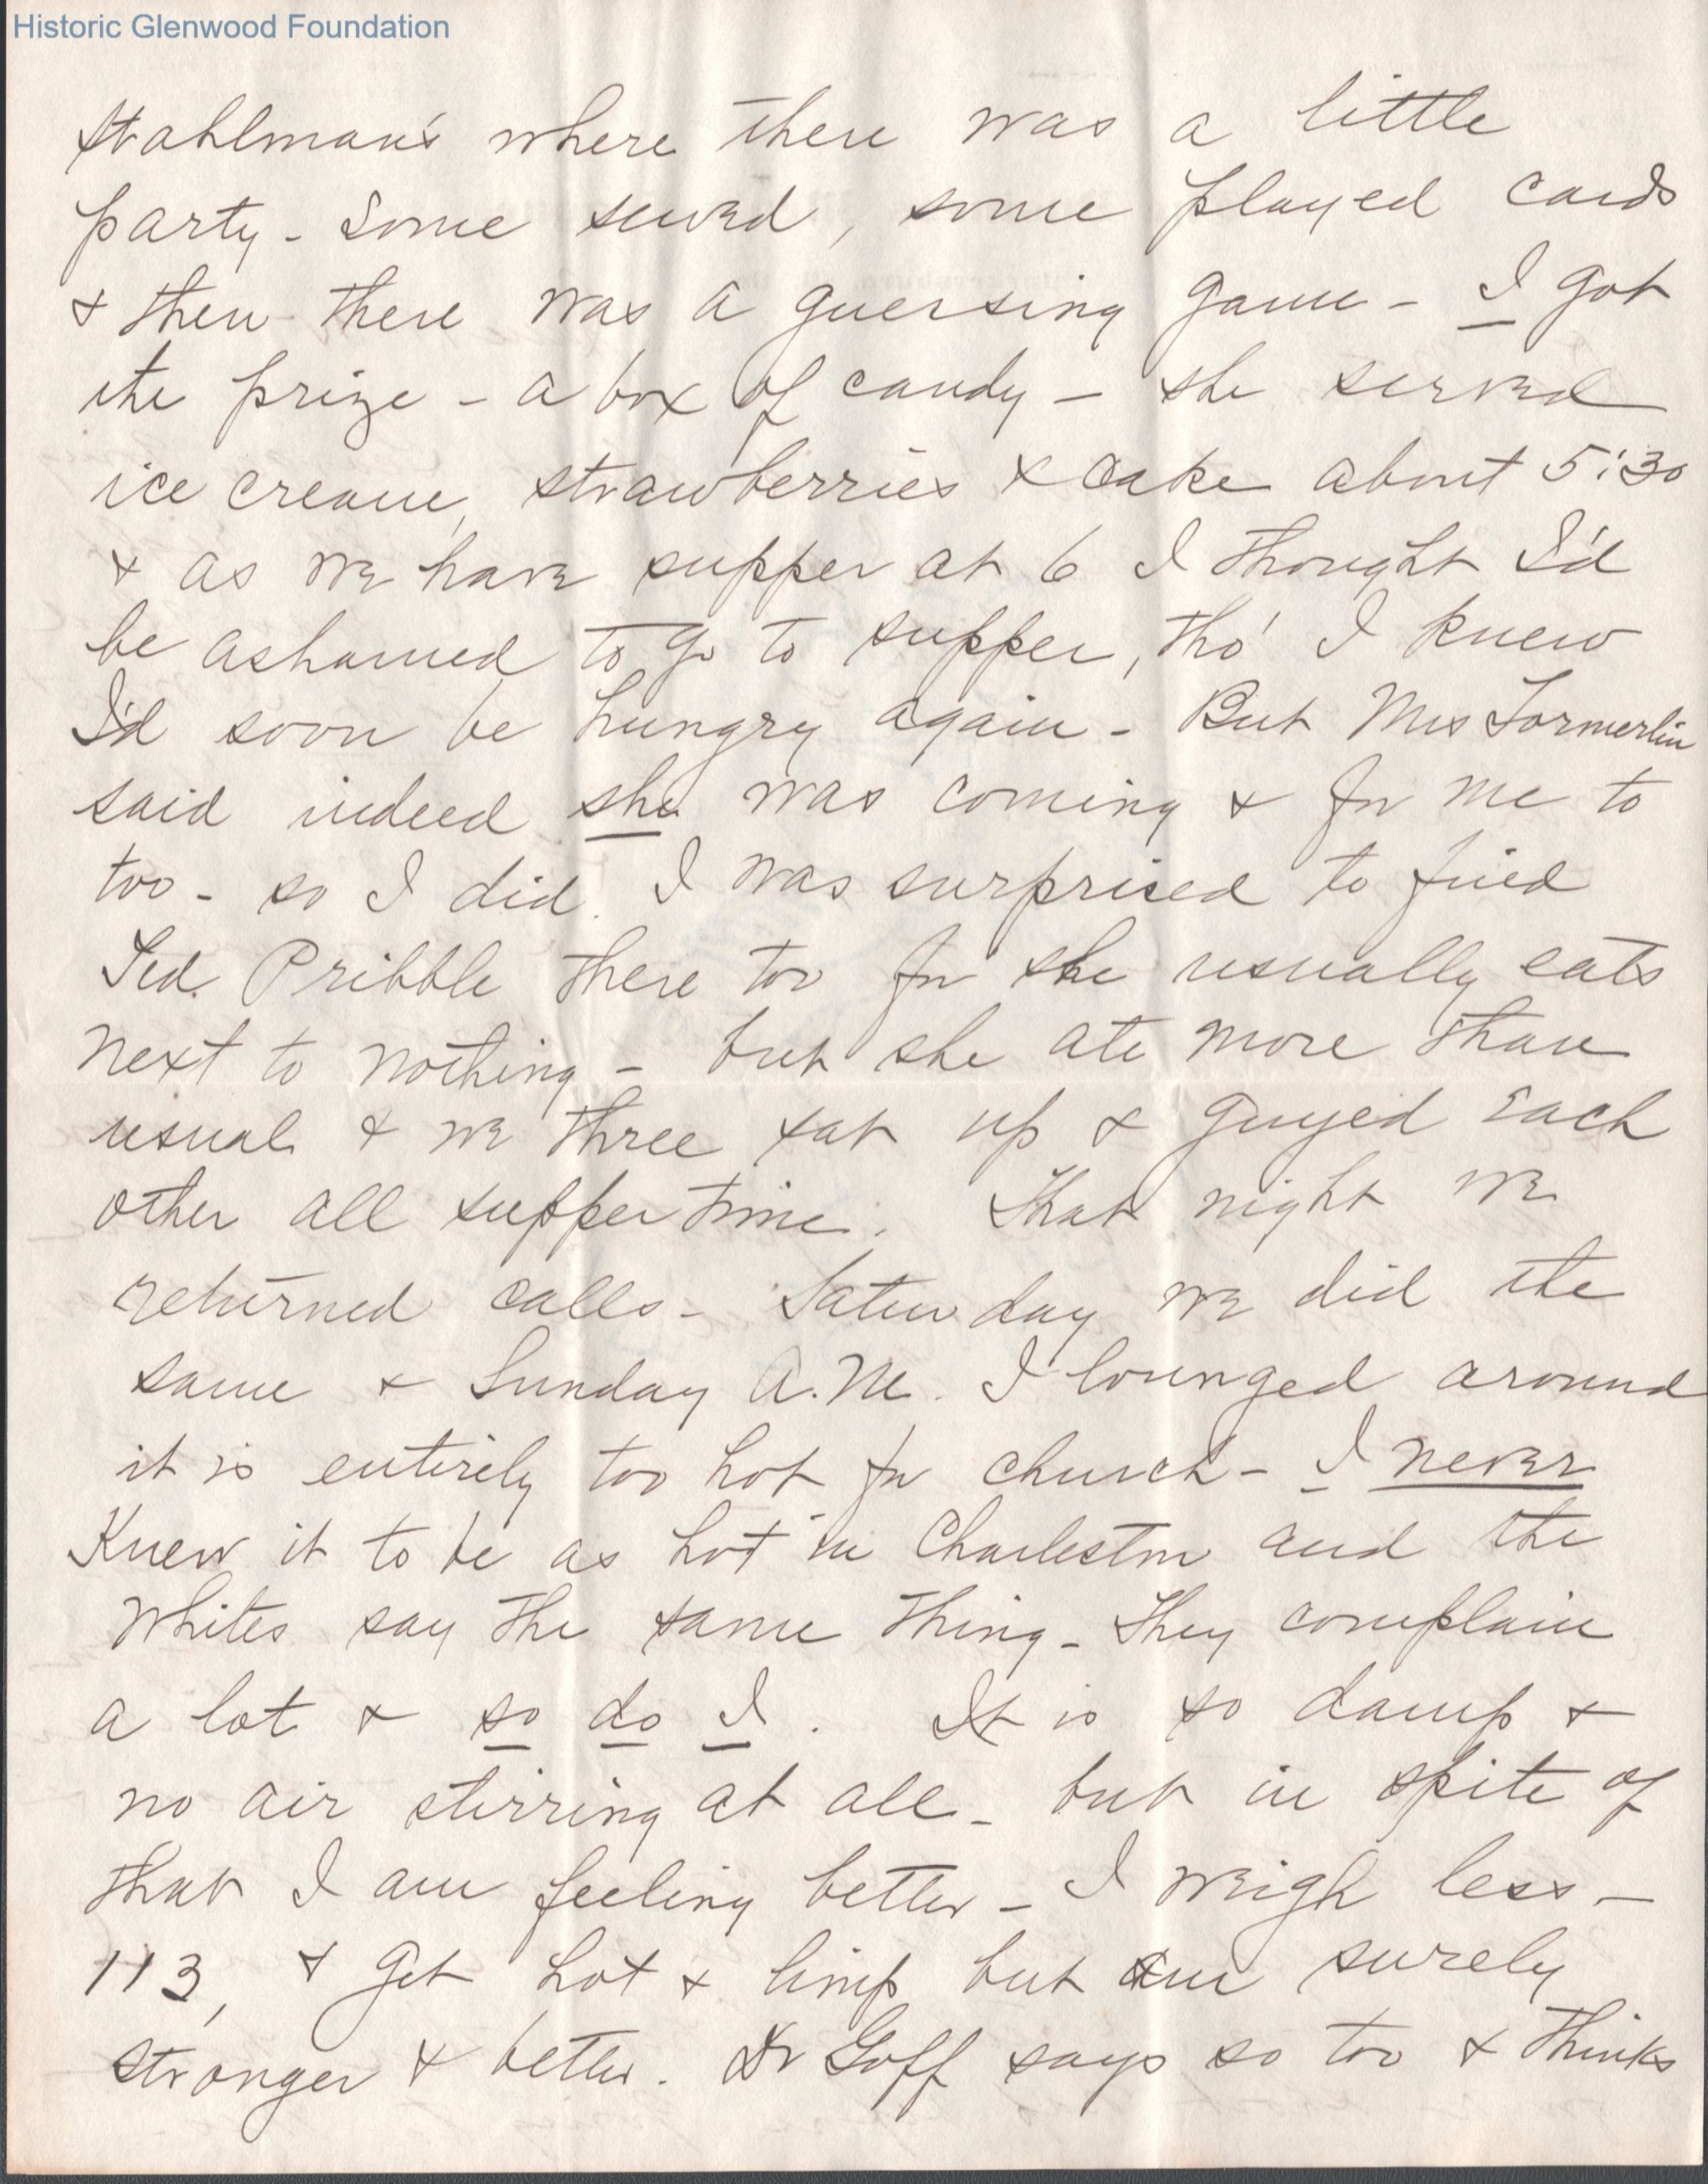 Historic Glenwood Foundation
Stahlman's where there was a little
party - Some sewed, some played cards
& then there was a guessing game - I got
the prize - a box of candy - she served
ice cream, strawberries & cake about 5:30
& as we have supper at 6 I thought I'd
be ashamed to go to supper, tho' I knew
I'd soon be hungry again - But Mrs Tormerlin
said indeed she was coming & for me to
too - so I did. I was surprised to find
Ted Pribble there too for she usually eats
next to nothing - but she ate more than
usual & we three sat up & guyed each
other all supper time. That night we
returned calls - Saturday we did the
same & Sunday A.M. I lounged around
it is entirely too hot for church - I never
knew it to be as hot in Charleston and the
Whites say the same thing - They complain
a lot & so do I. It is so damp &
no air stirring at all - but in spite of
that I am feeling better - I weigh less -
113, & get hot & limp but am surely
stronger & better. Dr Goff says so too & thinks